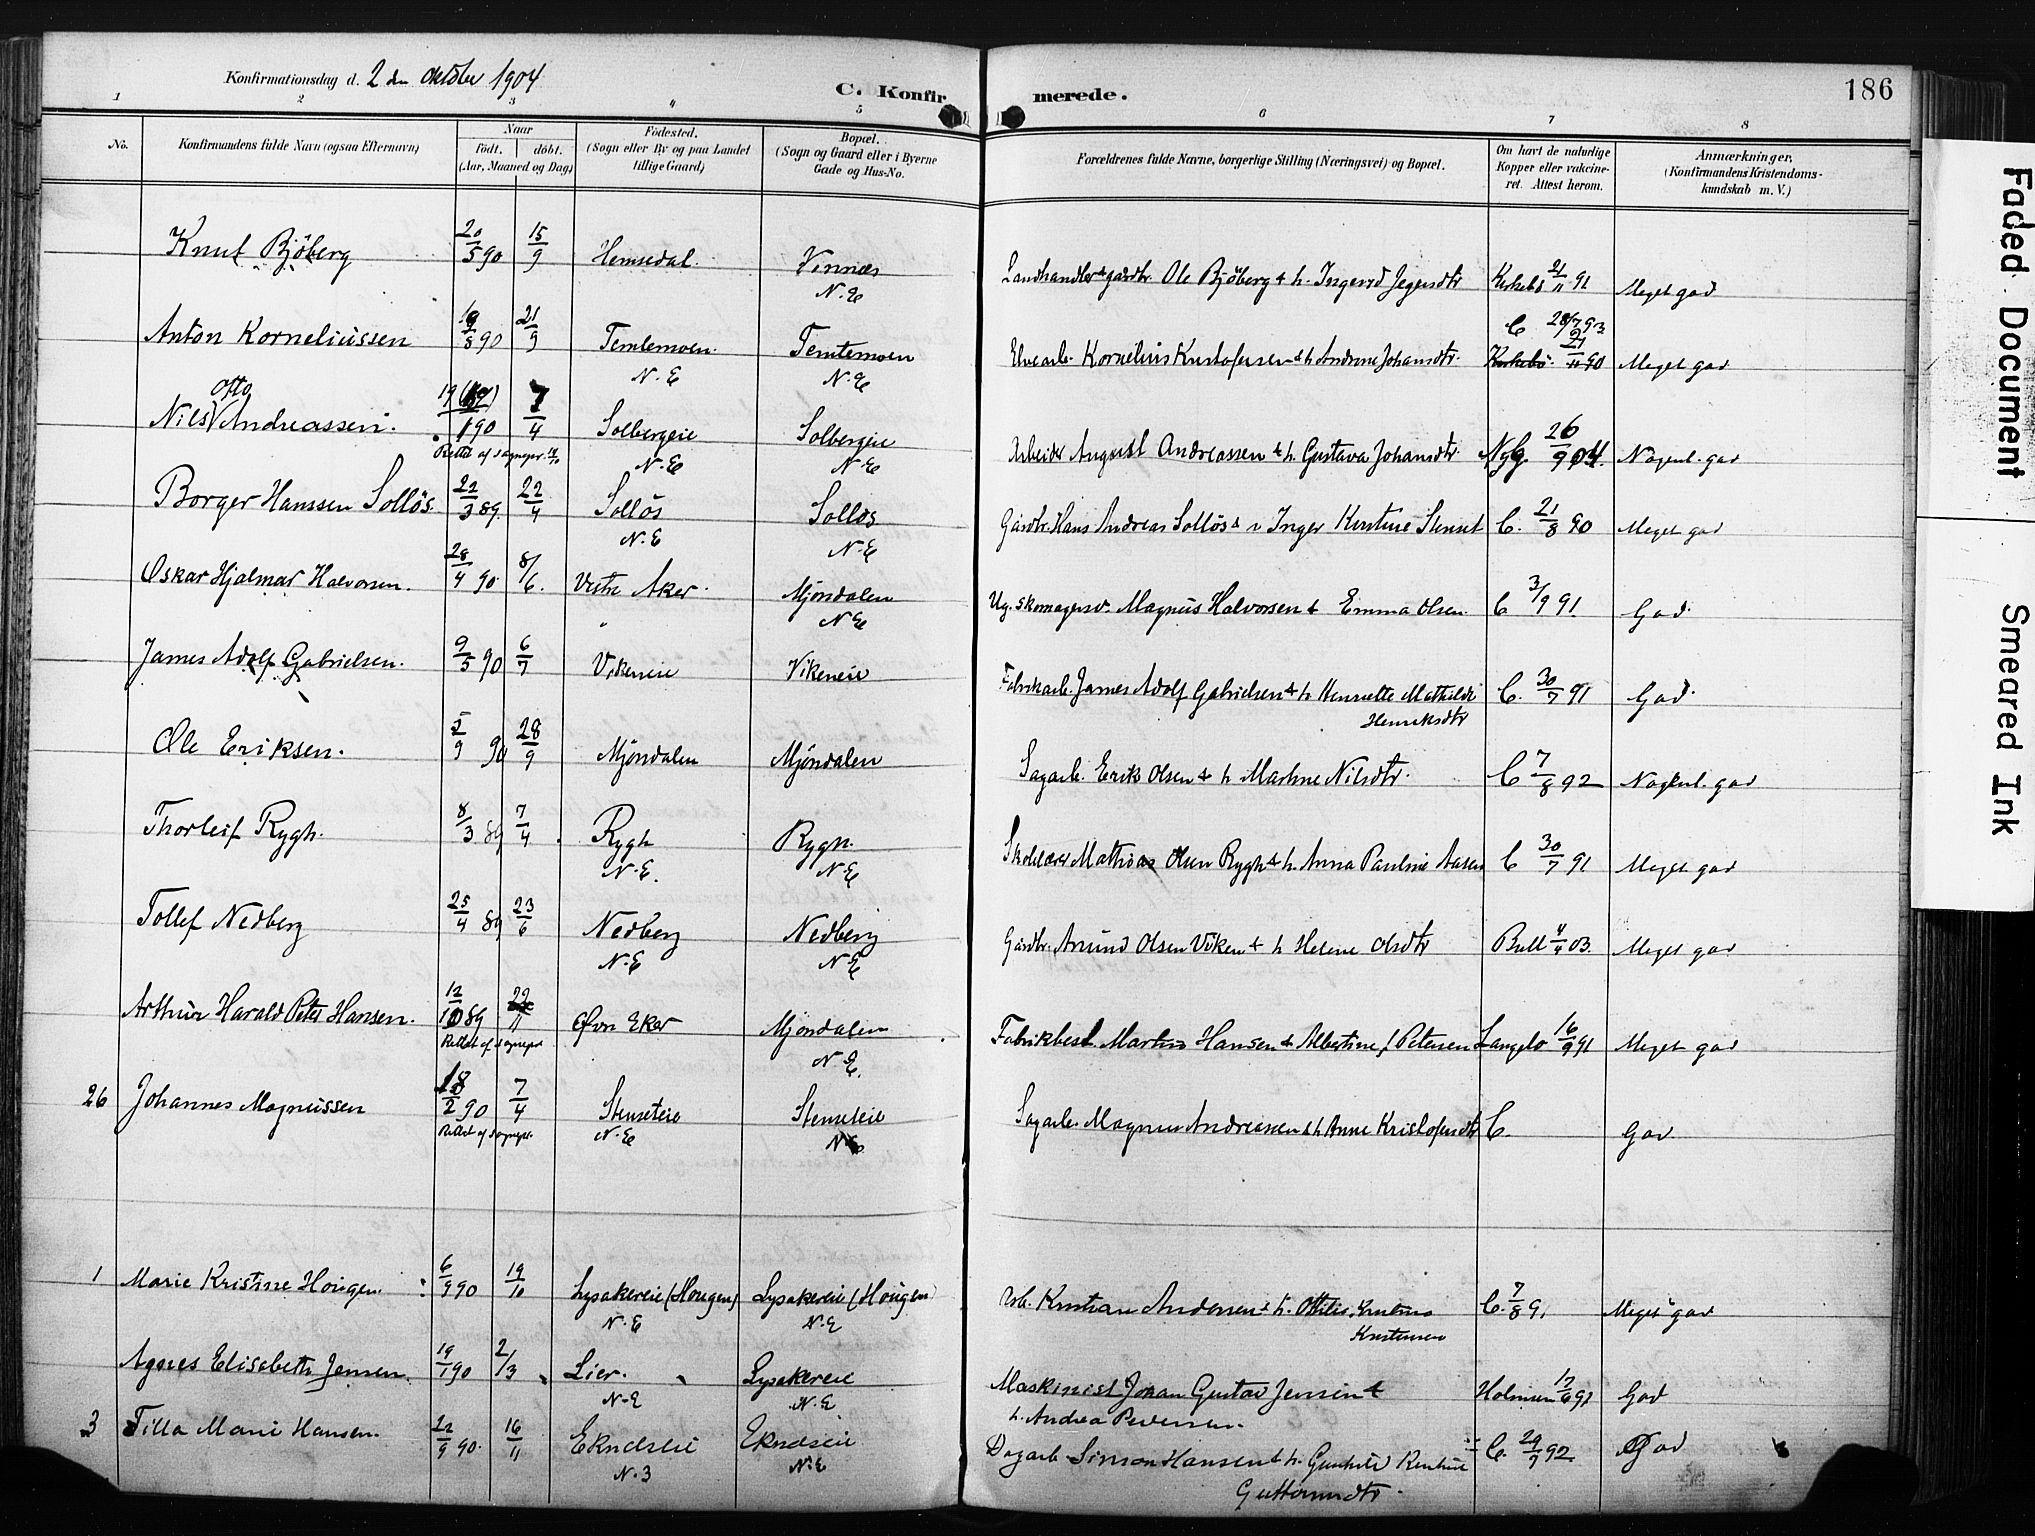 Konfirmationsdag d. 2 den Oktober 1904
C. Konfirmerede.
186
1 2 3 4 5 6 7 8
No.
Konfirmandens fulde Navn (ogsaa Efternavn)
Naar
født. døbt.
(Aar, Maaned og Dag)
Fødested.
(Sogn eller By og paa Landet
tillige Gaard)
Bopæl.
(Sogn og Gaard eller i Byerne
Gade og Hus-No.
Forældrenes fulde Navne, borgerlige Stilling (Næringsvei) og Bopæl.
Om havt de naturlige
Kopper eller vakcine-
ret. Attest herom.
Anmærkninger,
(Konfirmandens Kristendoms-
kundskab m. V.)
Knut Bjöberg 20/5 90 15/9 Hemsedal. Vinnæs N.E Landhandler & gaardbr. Ole Bjöberg & h. Kirkebö 21/11 91 Meget god
Anton Korneliussen /8 90 21/9 Temtemoen N.E Temtemoen N.E Elvearb. Kornelius Kristofersen & h. Andrine Johansdtr. C 28/7 93 Kirkebö 21/11 90 Meget god
Nils Otto Andreassen. 19 1 90 7/4 Solbergeie N.E Solbergeie N.E Arbeider August Andreassen & h. Gustava Johansdtr NyG. 26/9 04. Nogenl. god
Rettet af sognepr.
Borger Hanssen Sollös. 22/3 89. 22/4 Sollös N.E Sollös N.E Gaardbr. Hans Andreas Sollös & Inger Kirstine Stenset C. 21/8 90 Meget god
Oskar Hjalmar Halvorsen. 28/4 90. 8/6. Vestre Aker Mjöndalen N.E Ug. skomagersv. Magnus Halvorsen & Emma Olsen C 3/9 91 God
James Adolf Gabrielsen. 9/5 90 6/7 Vikeneie Vikeneie Fabrikarb. James Adolf Gabrielsen & h Henriette Mathilde
Henriksdtr C. 30/7 91 God
Ole Eriksen. 5/9 90 28/9 Mjöndalen Mjöndalen Sagarb. Erik Olsen & h Marthine Nilsdtr. C 7/8 92 Nogenl. god
Thorleif Rygh. 8/3 89 7/4 Rygh N.E. Rygh N.E Skolelærer Mathias Olsen Rygh & h. Anna Pauline Aasen C 30/7 91 Meget god
Tollef Nedberg 25/4 89 23/6 Nedberg N.E Nedberg N.E Gaardbr. Amund Olsen Viken & h Helene Olsdtr Bull 4/4 03. Meget god
Arthur Harald Peter Hansen. 12/10 89 22/11 Øvre Eker Mjöndalen N.E. Fabrikbest. Martin Hansen & Albertine f. Petersen Langelo 16/9 91 Meget god
Rettet af sognepr
26 Johannes Magnussen 18/2 90 7/4 Stenseteie N.E Stenseteie N.E Sagarb. Magnus Andreassen & h Anne Kristofersdtr C. God
Rettet af sognepr.
1 Marie Kristine Hougen 6/9 90 19/10 Lysakereie (Hougen) N.E Lysakereie (Hougen) N.E Arb. Kristian Andersen & h. Ottilie
Kristensen C. 7/8 91 Meget god
Agnes Elisabeth Jensen 19/1 90 2/3 Lier. N.E Lysakereie N.E Maskinist Johan Gustav Jensen &
h. Andrea Pedersen. Holmsen God
3 Tilla Marie Hansen. 22/9 90. 16/11 N.3 N.E Dagarb Simon Hansen & h. Gunhild
Guttormsdtr. C. 29/9 92 God
Faded Document
Smeared Ink